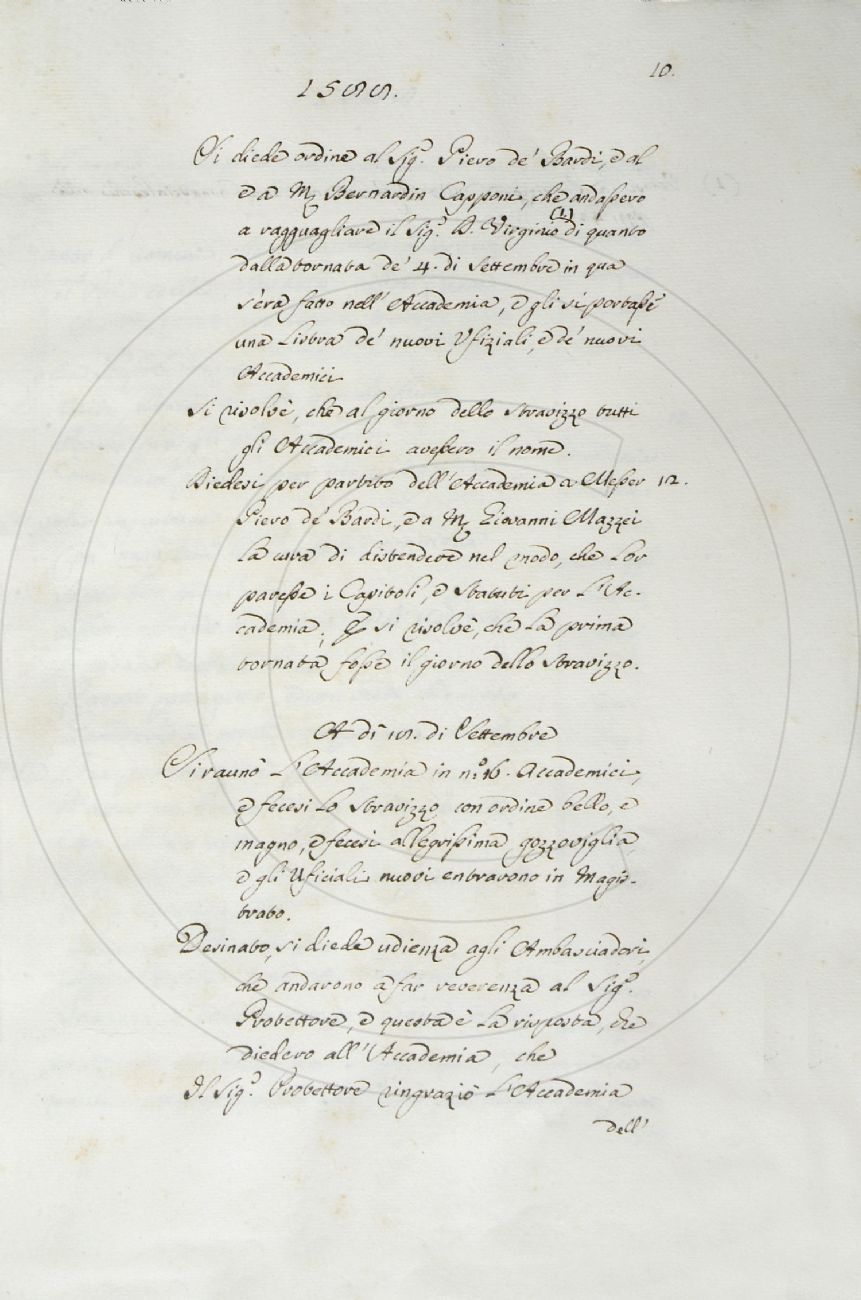 10.
1588.
Si diede ordine al Sig.r Piero de' Bardi, e al
e a M. Bernardin Capponi, che andassero
a ragguagliare il Sig.r D. Virginio (1) di quanto
dalla tornata de' 4. di Settembre in qua
s'era fatto nell'Accademia, e gli si portasse
una Listra de' nuovi Ufiziali, e de' nuovi
Accademici
Si risolvè, che al giorno dello Stravizzo tutti
gli Accademici avessero il nome.
Diedesi per partito dell'Accademia a Messer 12.
Piero de' Bardi, e a M. Giovanni Mazzei
la cura di distendere nel modo, che lor
paresse i Capitoli, e Statuti per l'Ac-
cademia; E si risolvè, che la prima
tornata fosse il giorno dello Stravizzo.
A dì 18. di Settembre
Si raunò l'Accademia in n.o 16. Accademici,
e fecesi lo Stravizzo con ordine bello, e
magno, e fecesi allegrissima gozzoviglia,
e gli Uficiali nuovi entrarono in Magis-
trato.
Desinato, si diede udienza agli Ambasciadori,
che andarono a far reverenza al Sig.r
Protettore, e questa è la risposta, che
diedero all'Accademia, che
Il Sig.r Protettore ringraziò l'Accademia
dell'